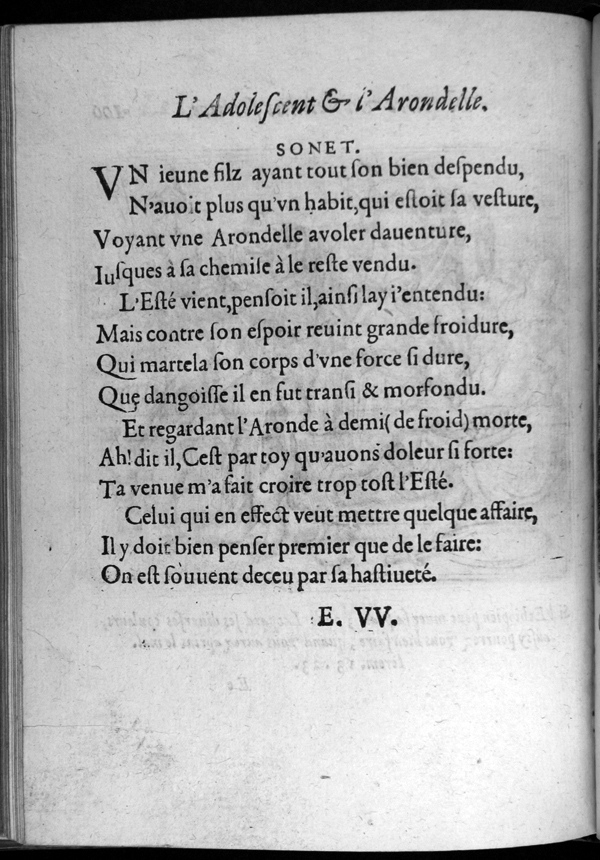 L'Adoleſcent & l'Arondelle.
SONET.
VN ieune filz ayant tout ſon bien deſpendu,
N'auoit plus qu'vn habit,qui eſtoit ſa veſture,
Voyant vne Arondelle avoler dauenture,
Iuſques à ſa chemiſe à le reſte vendu.
L'Eſté vient,penſoit il,ainſi lay i'entendu:
Mais contre ſon eſpoir reuint grande froidure,
Qui martela ſon corps d'vne force ſi dure,
Que dangoiſſe il en fut tranſi & morfondu.
Et regardant l'Aronde à demi(de froid)morte,
Ah! dit il,Ceſt par toy qu'auons doleur ſi forte:
Ta venue m'a fait croire trop toſt l'Eſté.
Celui qui en effect veut mettre quelque affaire,
Il y doit bien penſer premier que de le faire:
On eſt ſouuent deceu par ſa haſtiueté.
E. VV.